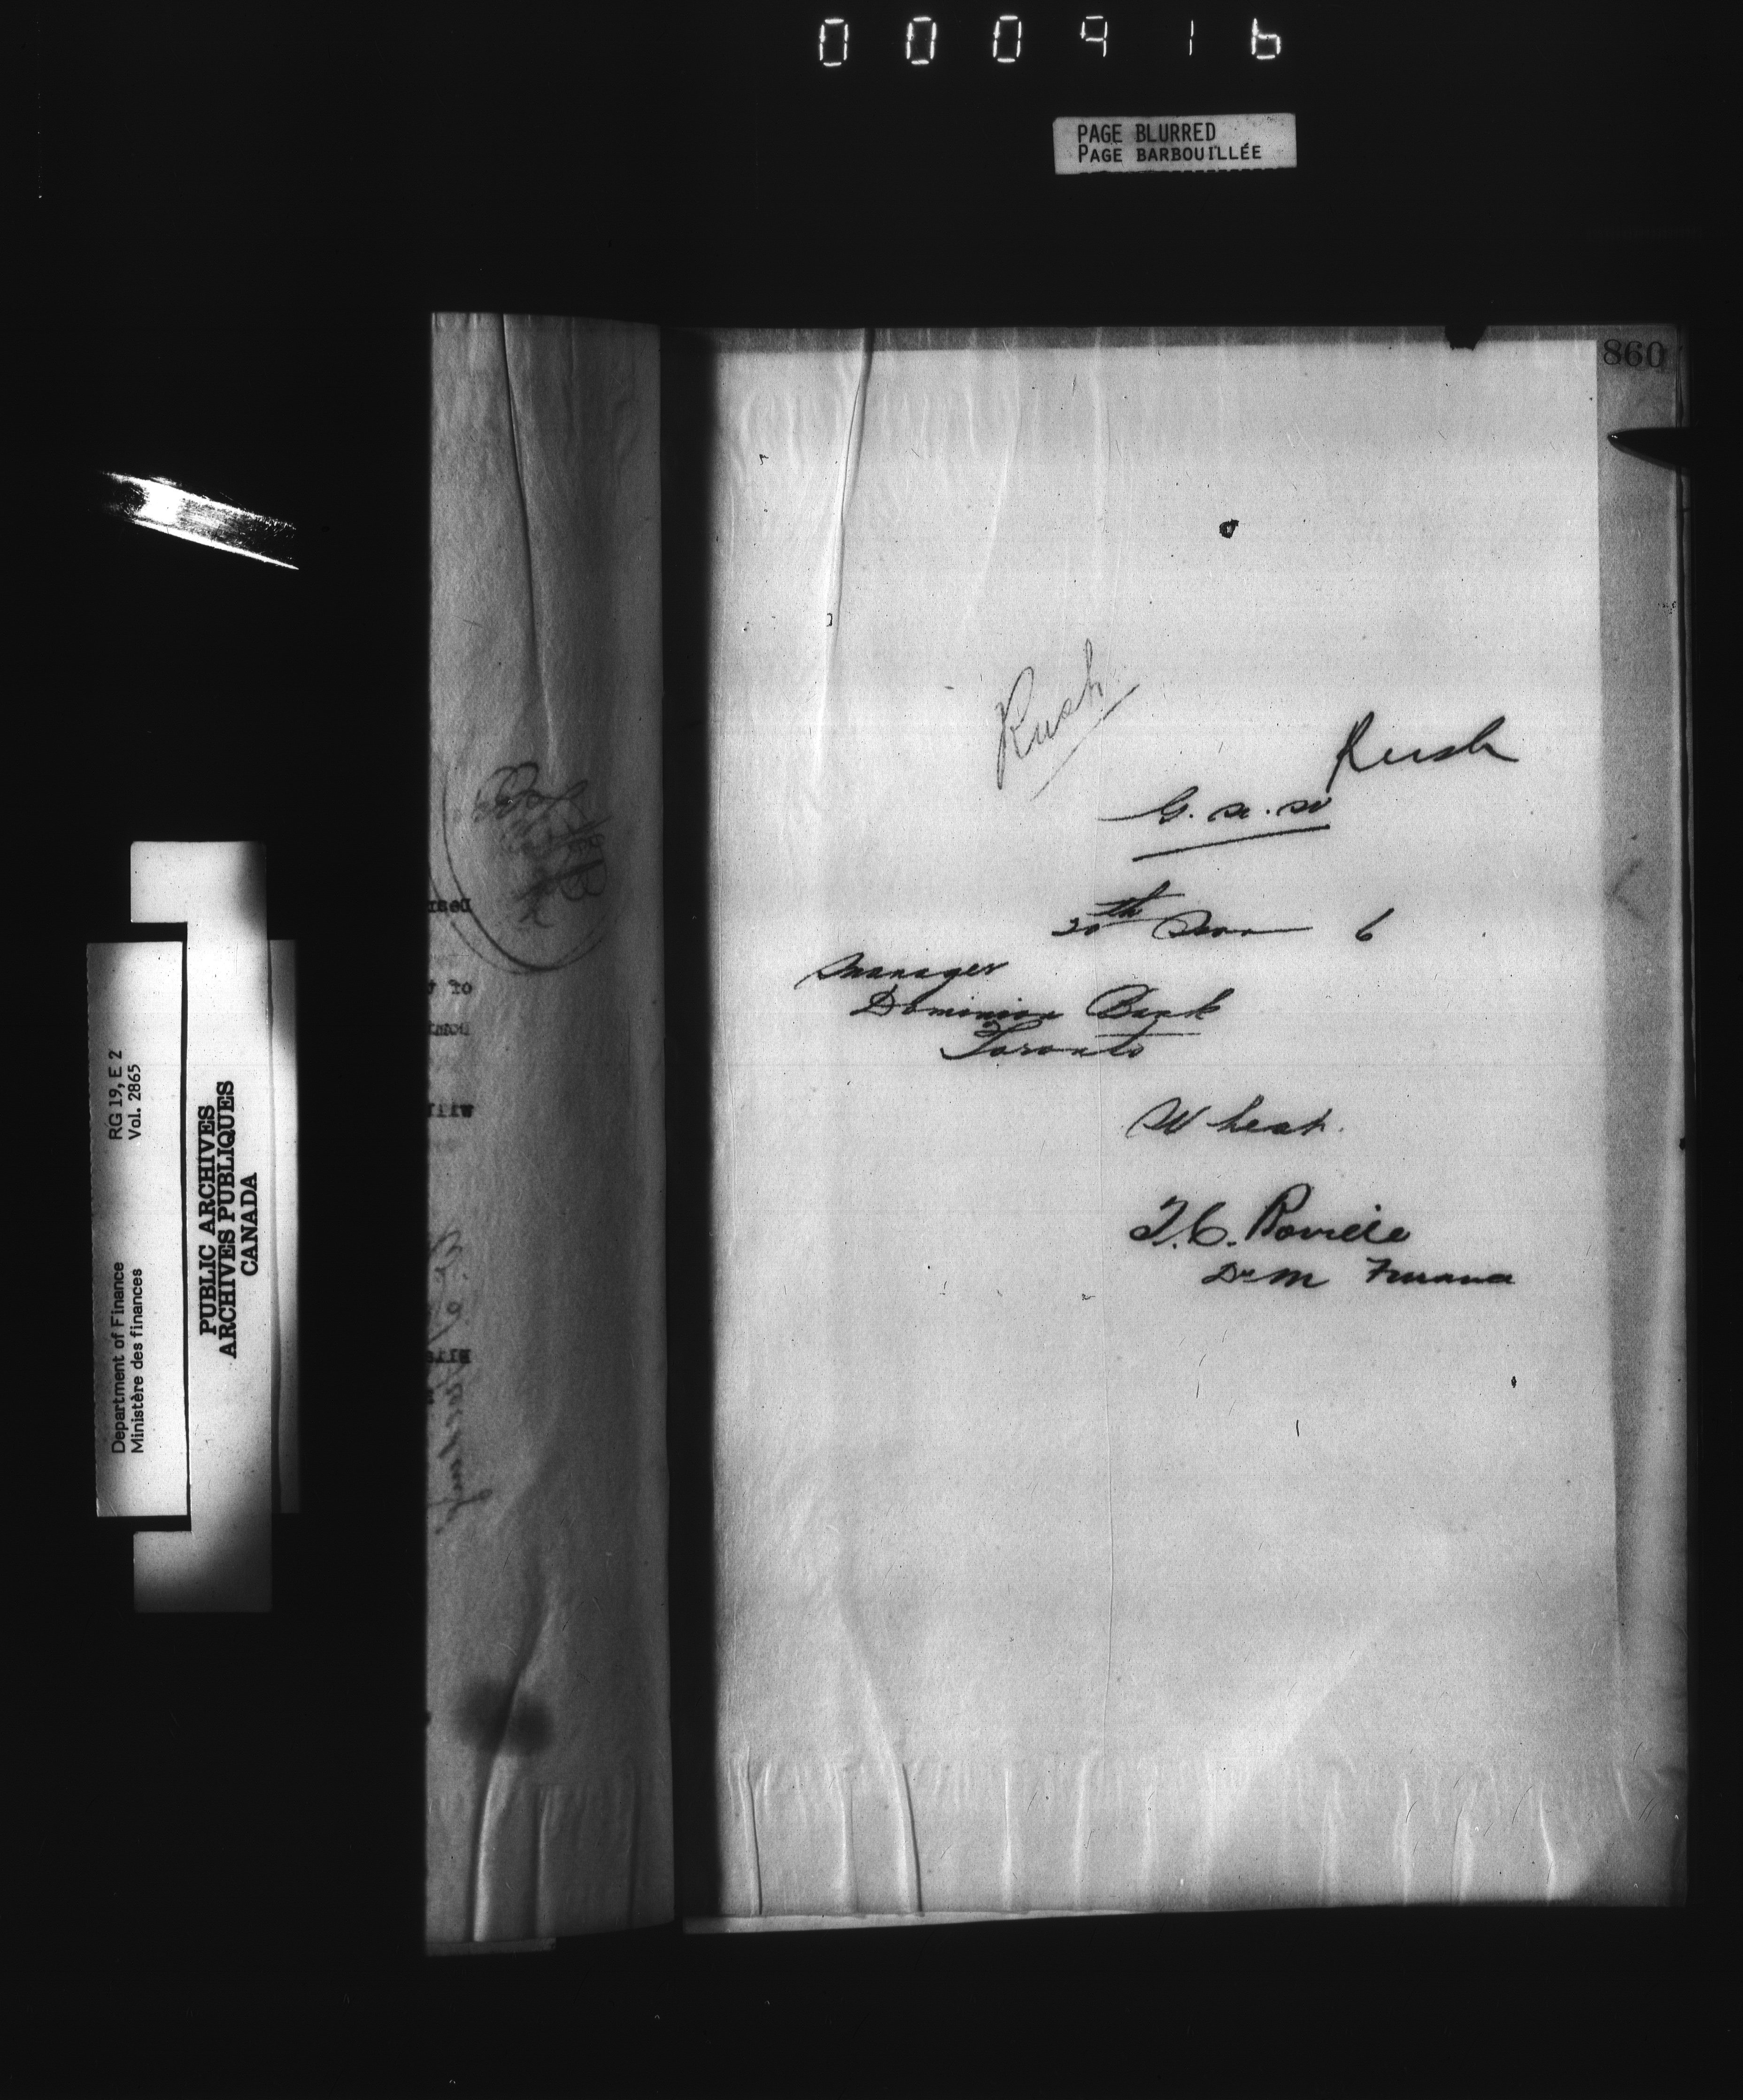 000916
PAGE BLURRED
PAGE BARBOUILLÉE
860
Rush
Rush
G. N. W
20th Nov 6
Manager
Dominion Bank
Toronto
Wheat.
T. C. Boville
D. M Finance
RG 19, E 2
Vol. 2865
Department of Finance
Ministère des finances
PUBLIC ARCHIVES
ARCHIVES PUBLIQUES
CANADA